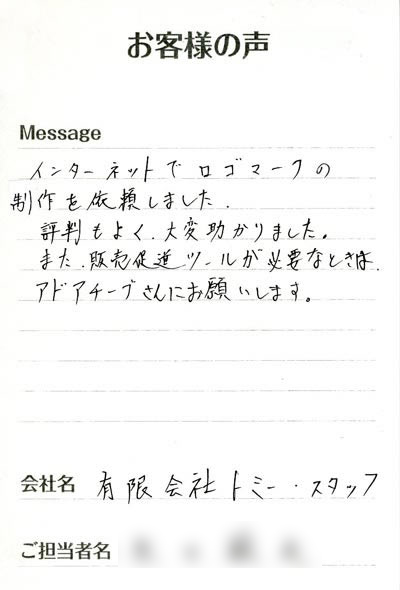 お客様の声
Message
インターネットでロゴマークの
制作を依頼しました.
評判もよく、大変助かりました。
また、販売促進ツールが必要なときは、
アドアチーブさんにお願いします。
会社名 有限会社トミー・スタッフ
ご担当者名